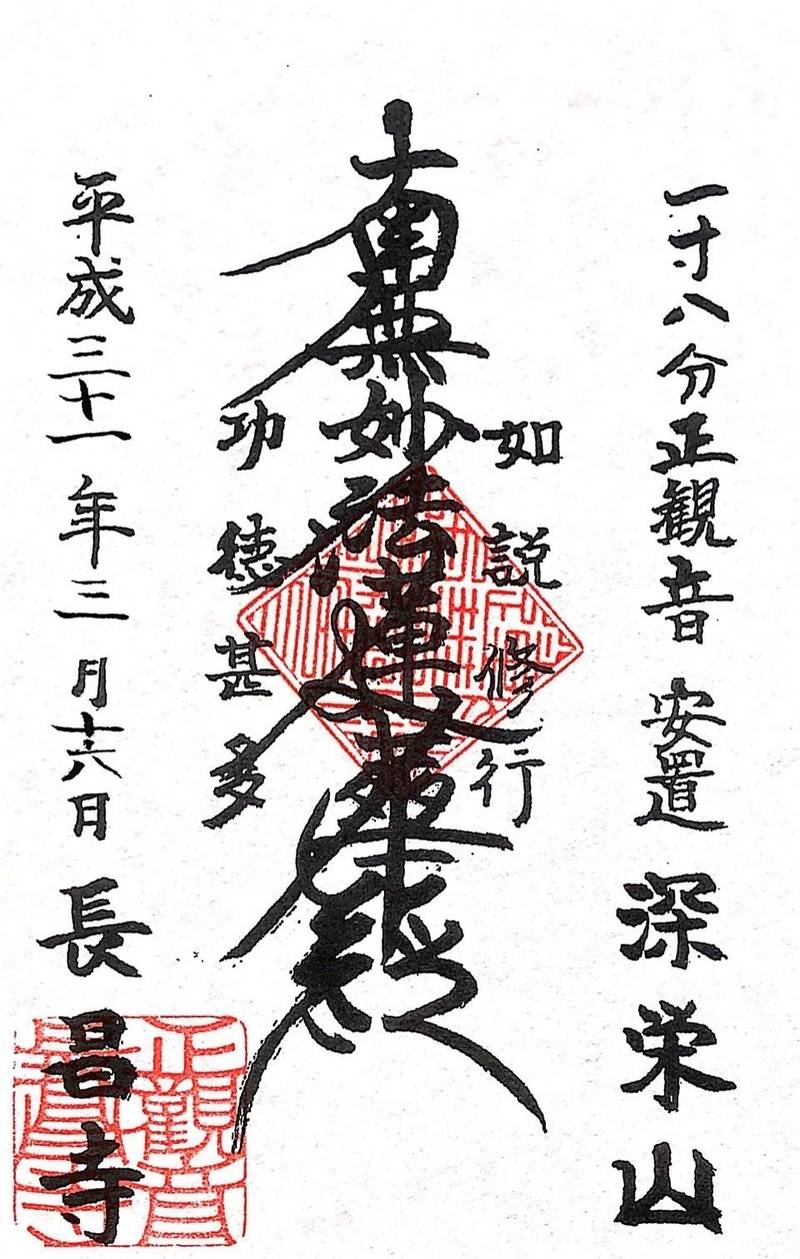 一寸八分正観音 安置 深栄山
如説修行
南無妙法蓮華経
功徳甚多
平成三十一年三月十六日 長昌寺
正觀音